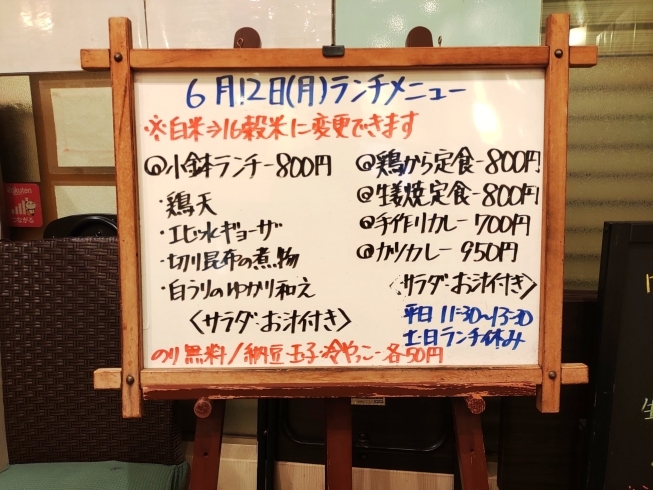 6月12日(月)ランチメニュー
※白米⇒16穀米に変更できます
@小鉢ランチー800円
・鶏天
・エビ水ギョーザ
・切り昆布の煮物
・白うりのゆかり和え
〈サラダ・お汁付き〉
@鶏から定食-800円
@生姜焼定食-800円
@手作りカレー 700円
@カツカレー 950円
〈サラダ・お汁付き〉
平日 11:30~13:30
土日ランチ休み
のり無料/納豆・玉子・冷やっこ-各50円
Rakuten
つながる